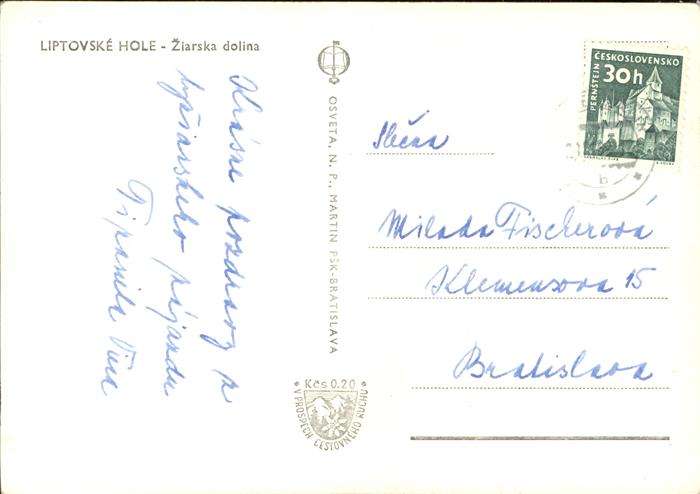 LIPTOVSKÉ HOLE - Žiarska dolina
Krásne pozdravy z
lyžiarskeho zájazdu
Vám
OSVETA, N. P., MARTIN PŠK-BRATISLAVA
Kčs 0.20
V PROSPECH CESTOVNÉHO RUCHU
ČESKOSLOVENSKO
30h
PERNŠTEJN
Milada Fischerová
Klemensova 15
Bratislava